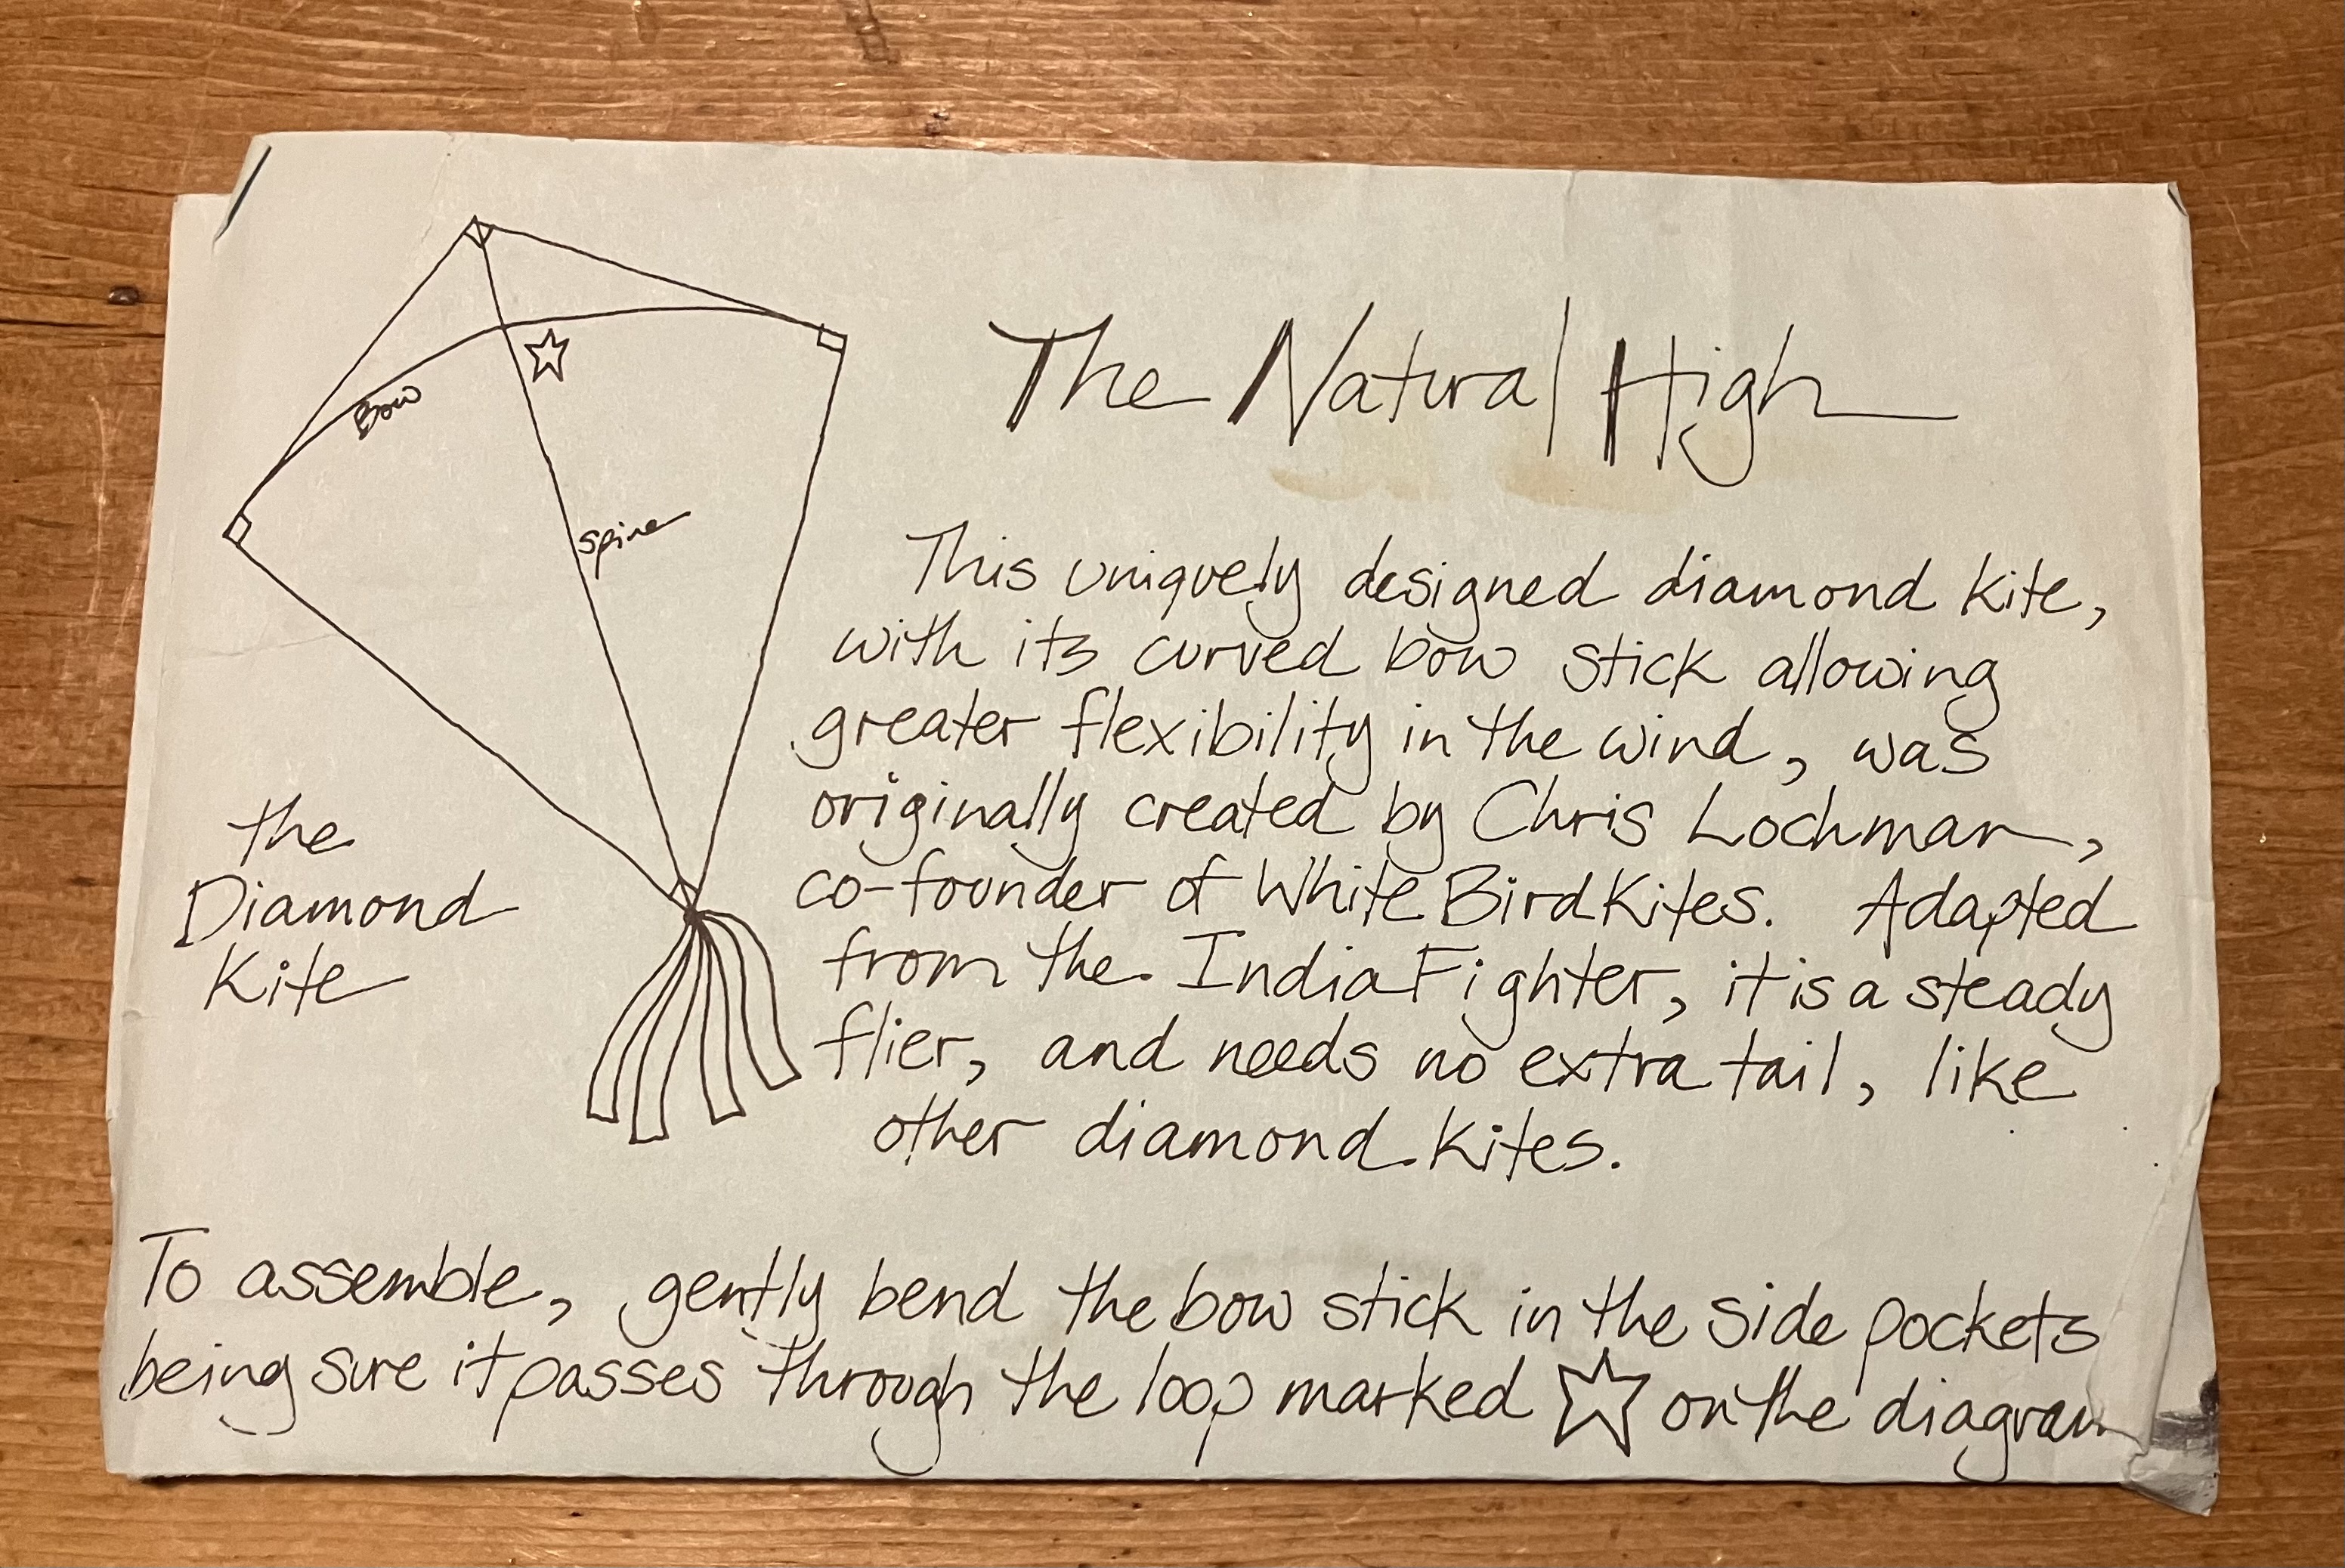 The Natural High
Bow
Spine
This uniquely designed diamond kite,
with its curved bow stick allowing
greater flexibility in the wind, was
originally created by Chris Lochman,
co-founder of White Bird Kites. Adapted
from the India Fighter, it is a steady
flier, and needs no extra tail, like
other diamond kites.
the
Diamond
Kite
To assemble, gently bend the bow stick in the side pockets
being sure it passes through the loop marked ☆ on the diagram